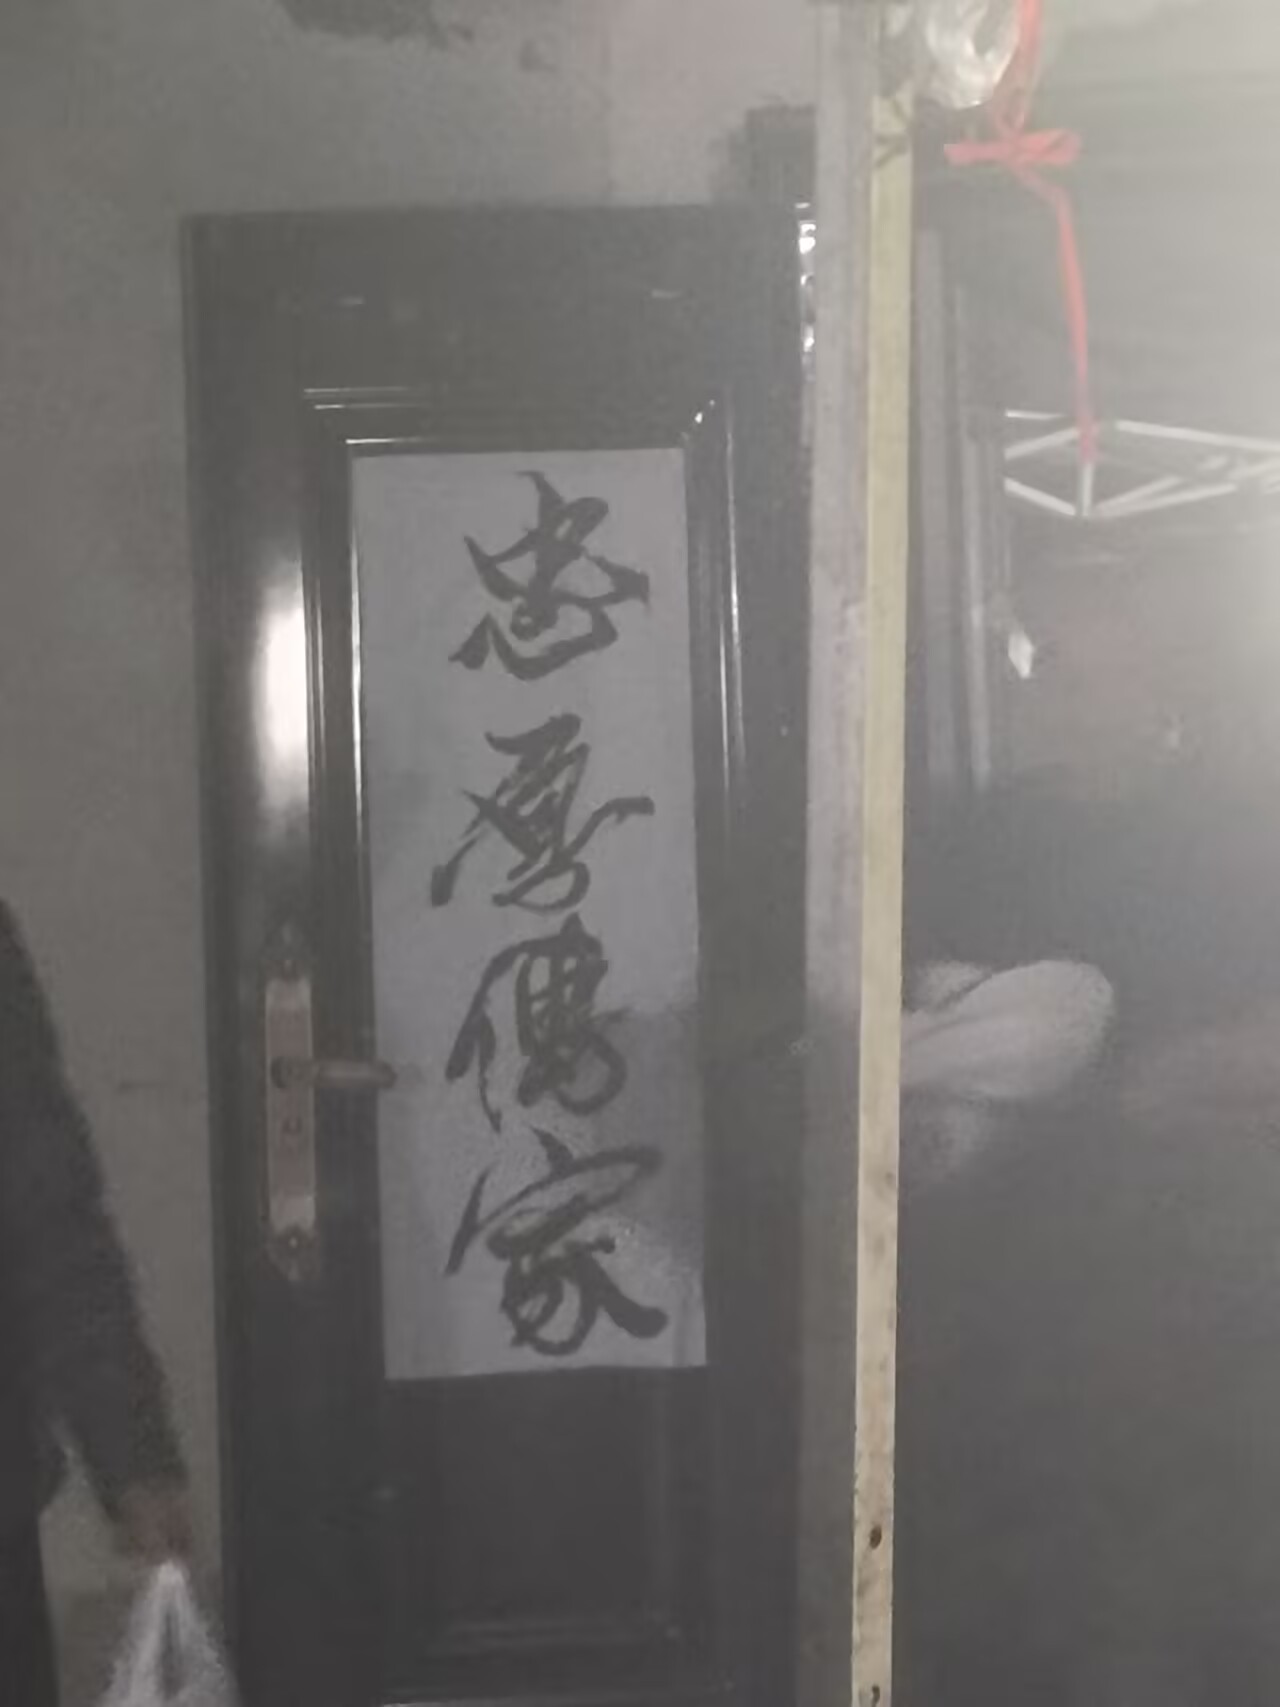 忠厚傳家